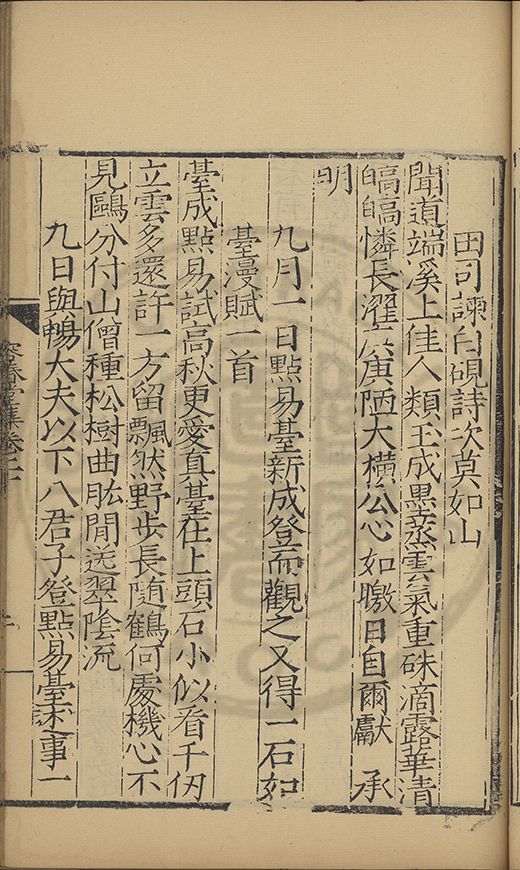 田司諫白硯詩次莫如山
聞道端溪上佳人類玉成墨蒸雲氣重硃滴露華清
皜皜憐長濯庚庚陋大橫公心如曒日自爾獻承
明
九月一日點易臺新成登而觀之又得一石如
臺漫賦一首
臺成點易試高秋更愛真臺在上頭石小似看千仞
立雲多還許一方留飄然野步長隨鶴何處機心不
見鷗分付山僧種松樹曲肱閒送翠陰流
九日與暢大夫以下八君子登點易臺末事一